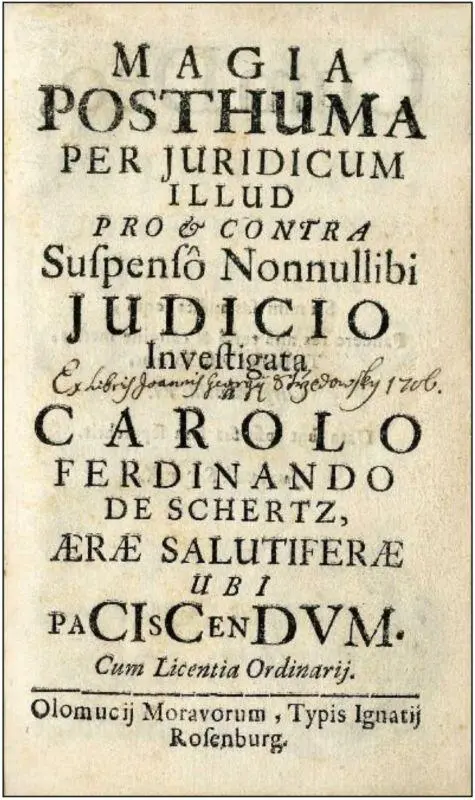 MAGIA
POSTHUMA
PER JURIDICUM
ILLUD
PRO & CONTRA
Suſpenſô Nonnullibi
JUDICIO
Inveſtigata
Ex libris Joannis Georgij Strzedowsky 1706.
à
CAROLO
FERDINANDO
DE SCHERTZ,
ÆRÆ SALUTIFERÆ
UBI
PACISCENDVM.
Cum Licentia Ordinarij.
Olomucij Moravorum, Typis Ignatij
Roſenburg.